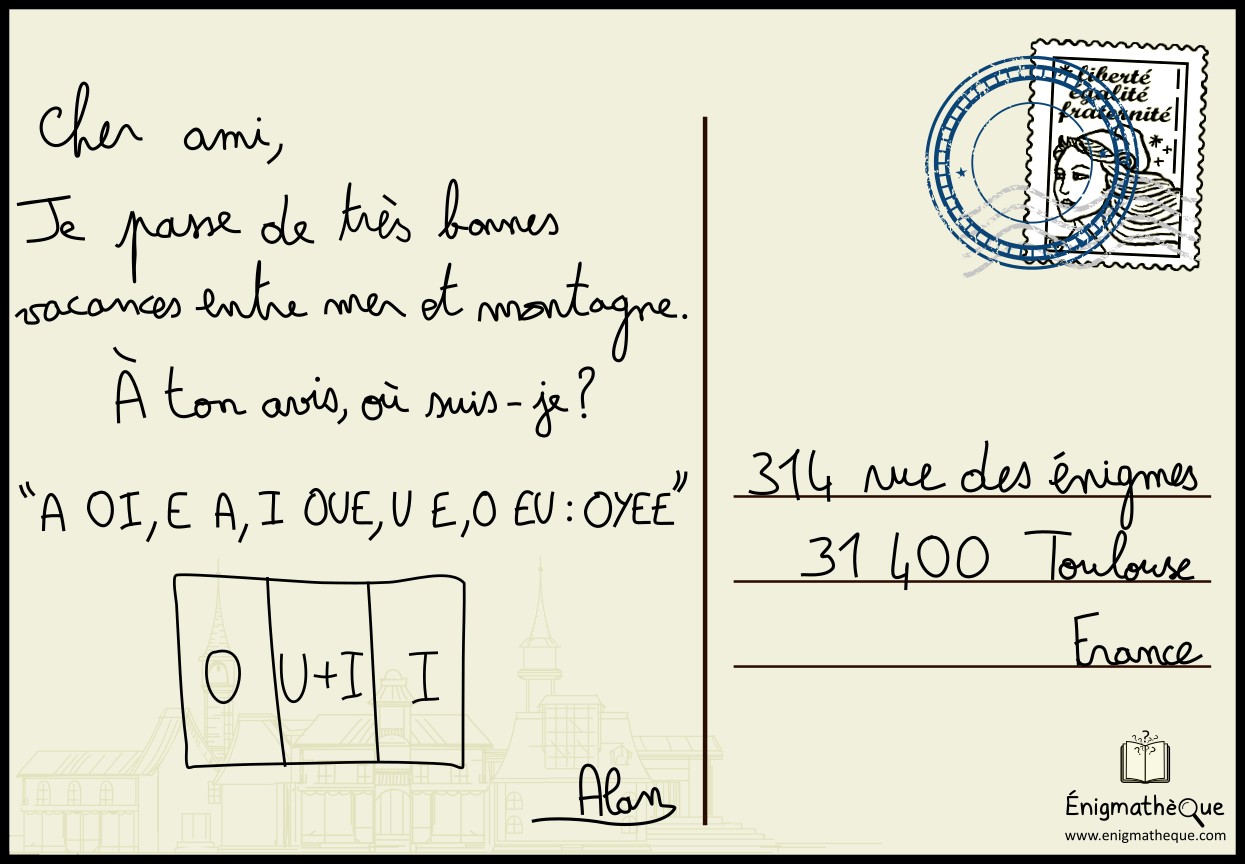 Cher ami,
Je passe de très bonnes
vacances entre mer et montagne.
À ton avis, où suis-je ?
"A OI, E A, I OUE, U E, O EU : OYEE"
O U+I I
Alan
liberté
egalité
fraternité
314 rue des énigmes
31 400 Toulouse
France
ÉnigmathèQue
www.enigmatheque.com